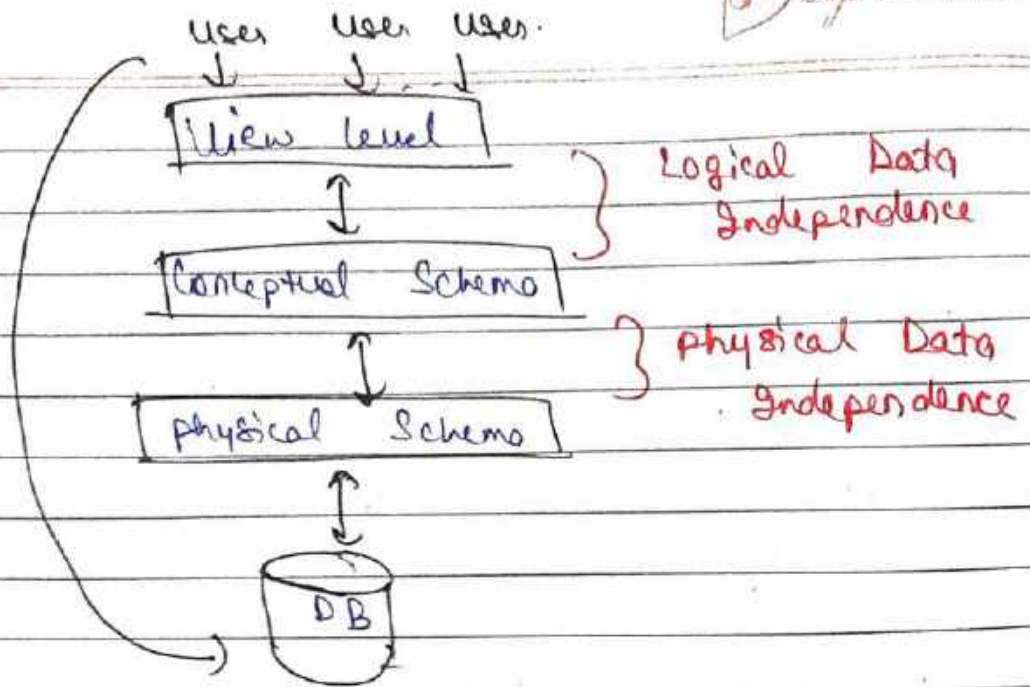 User User User.
View level
Logical Data
Independence
Conceptual Schema
physical Data
Independence
physical Schema
DB